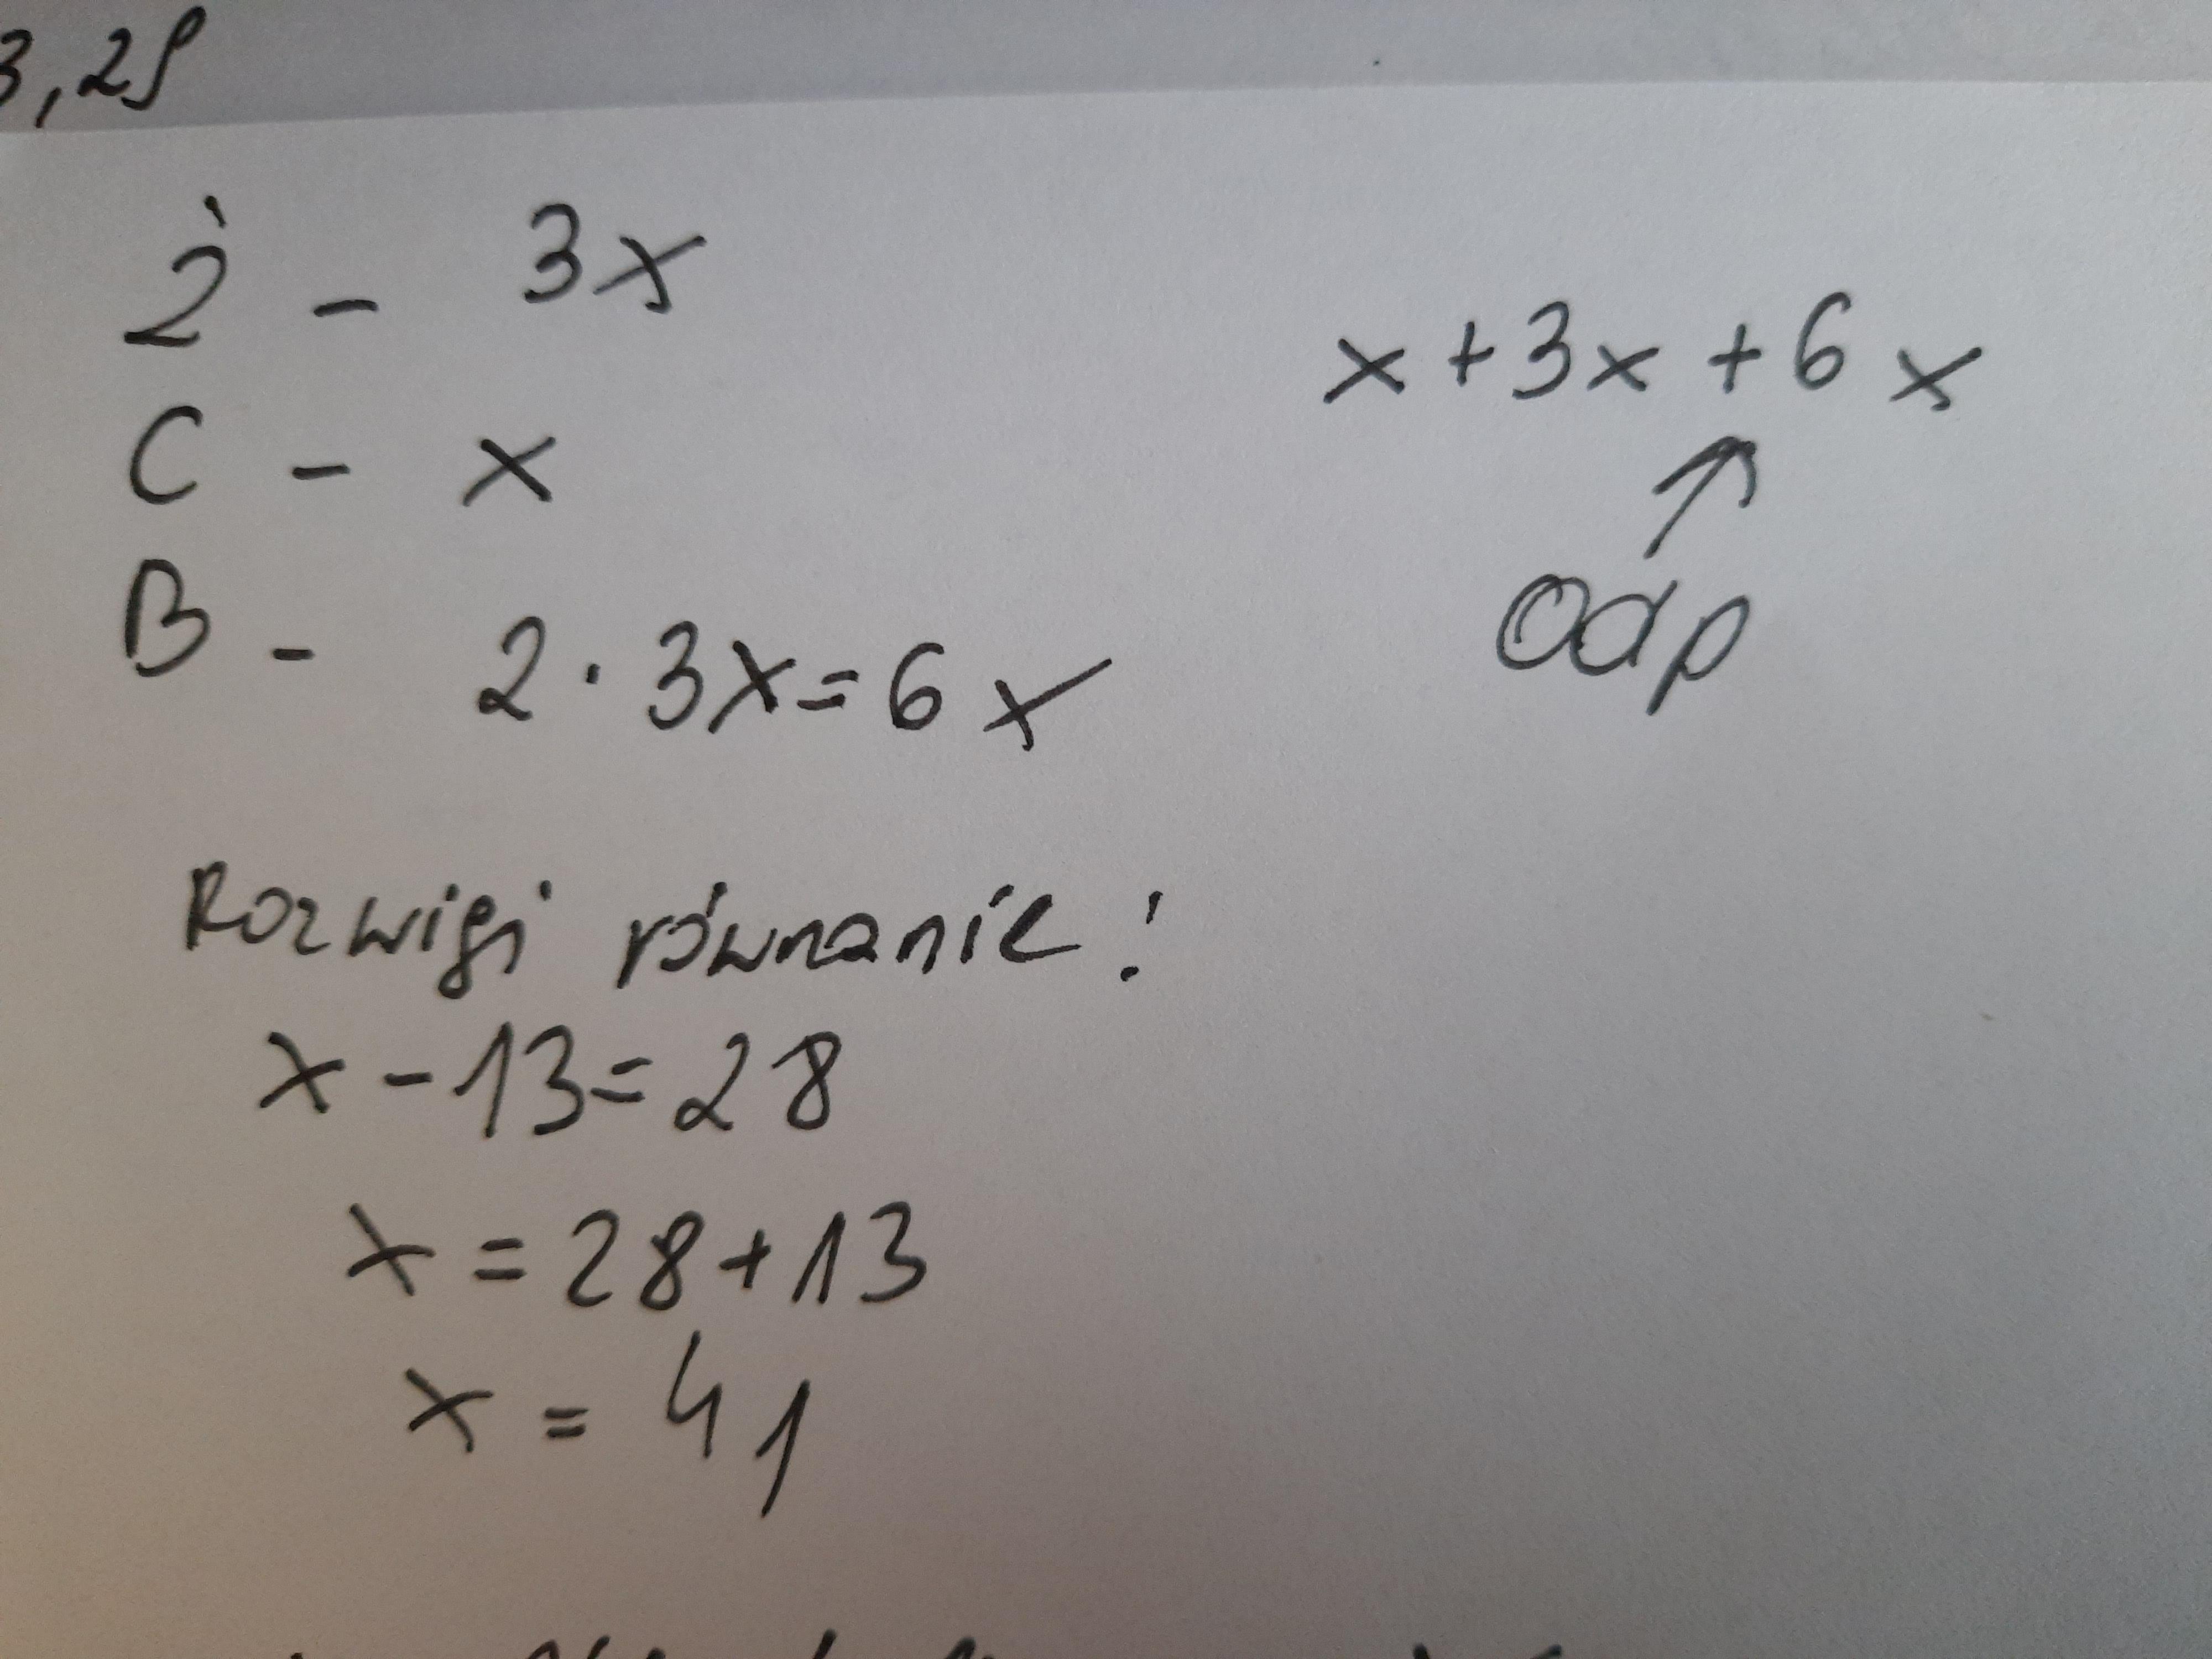 Ż - 3x
C - x
B - 2 · 3x = 6x
x + 3x + 6x
Odp
Rozwiąż równanie:
x - 13 = 28
x = 28 + 13
x = 41